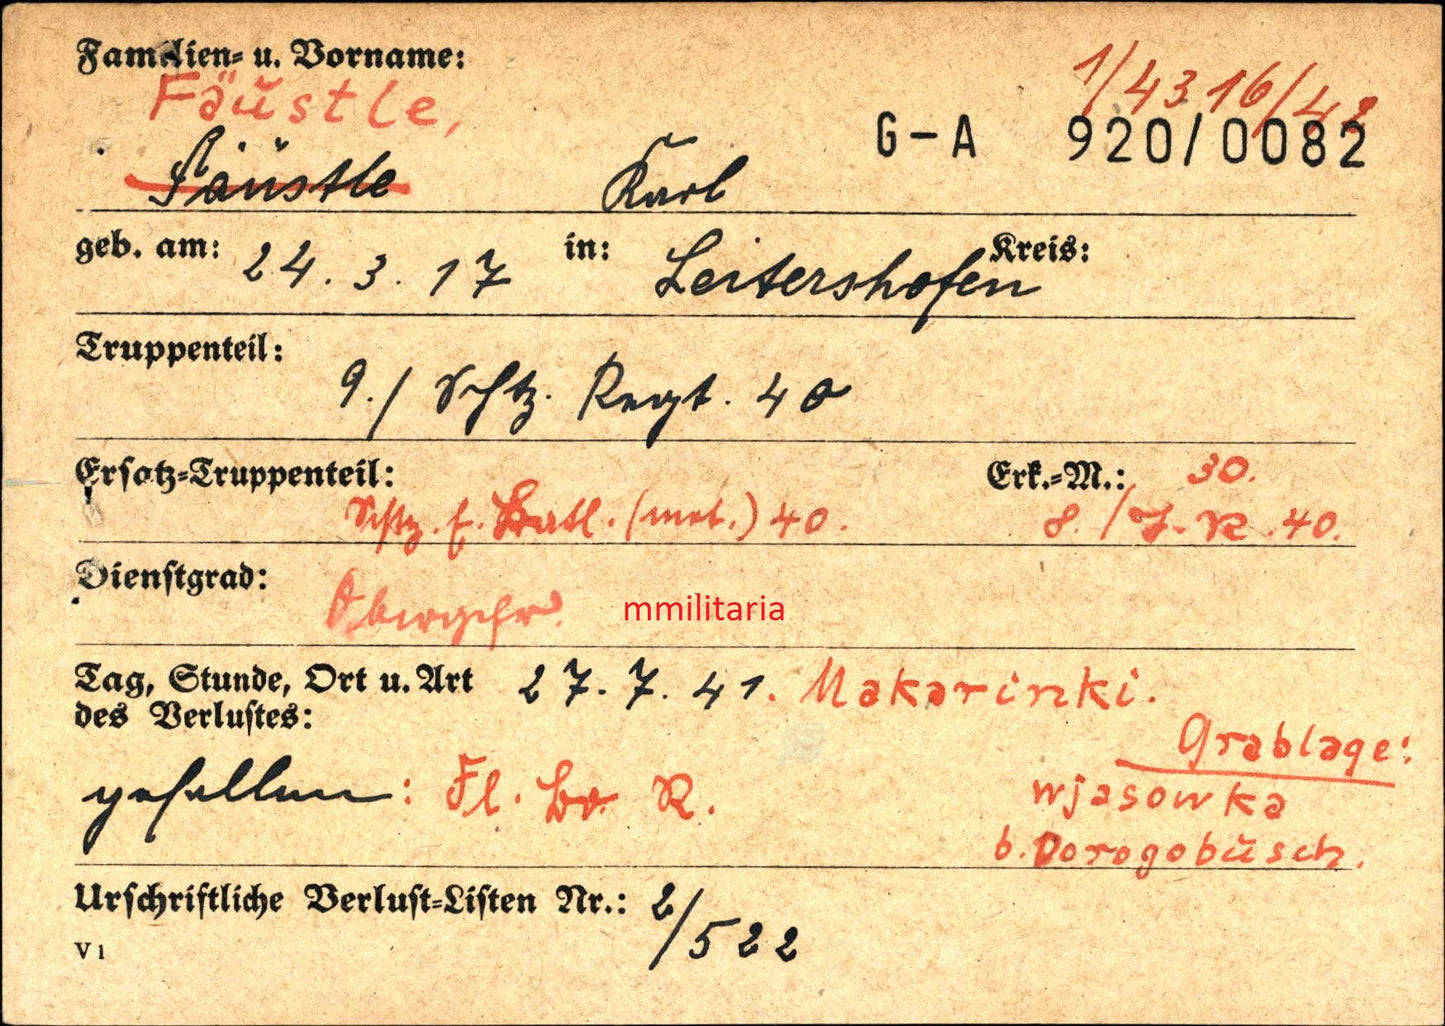 Familien- u. Vorname:
1/43 16/42
Fäustle,
G-A 920/0082
Fäustle Karl
geb. am: 24.3.17 in: Leitershofen Kreis:
Truppenteil:
9./ Schtz. Regt. 40
Ersatz-Truppenteil: Erk.-M.: 30.
Schtz. E. Batl. (mot.) 40. 8./J.R.40.
Dienstgrad:
Obergefr. mmilitaria
Tag, Stunde, Ort u. Art 27.7.41. Makarinki.
des Verlustes:
Grablage:
gefallen: Fl. R.
Wjasowka
b. Dorogobusch.
Urschriftliche Verlust-Listen Nr.: 2/522
V 1